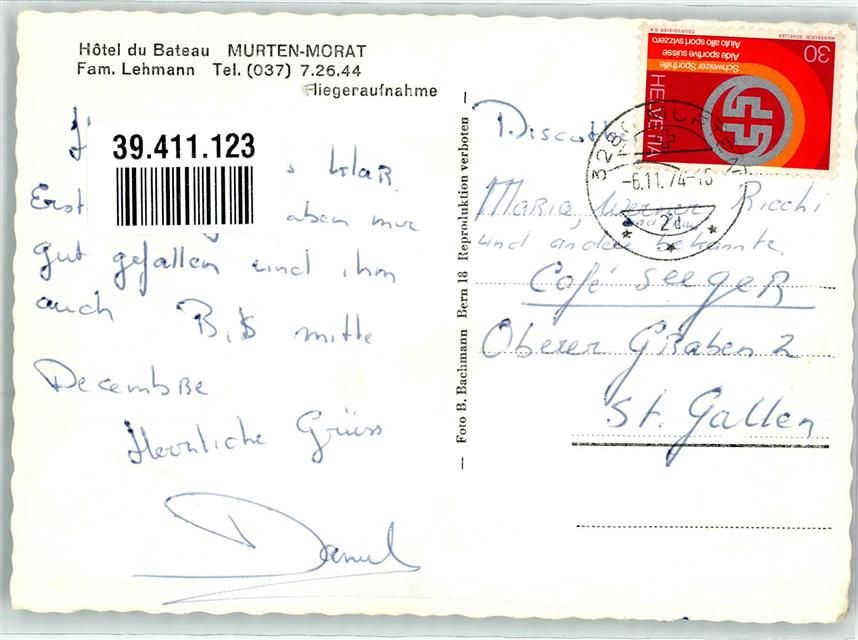 Hôtel du Bateau MURTEN-MORAT
Fam. Lehmann Tel. (037) 7.26.44
Fliegeraufnahme
39.411.123
s klar
Erst
aben mir
gut gefallen und ihm
auch B.S mitte
Decembre
Herzliche Grüss
Daniel
Foto B. Bachmann Bern 18 Reproduktion verboten
HELVETIA
30
Schweizer Sporthilfe
Aide sportive suisse
Aiuto allo sport svizzero
COURVOISIER S.A.
HANSRUEDI SCHELLER
328
-6.11.74-18
2d
Discothe
Mario, Werner Ricchi
und andere bekannte
Café Seeger
Oberer Graben 2
St. Gallen